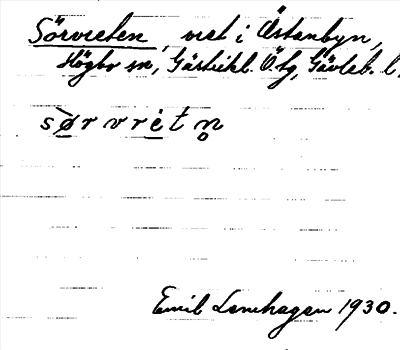 Sörvreten, vret i Östanbyn,
Högbo sn, Gästrikl. Ö. tg, Gävleb. l.
sørvretn
Emil Lenehagen 1930.